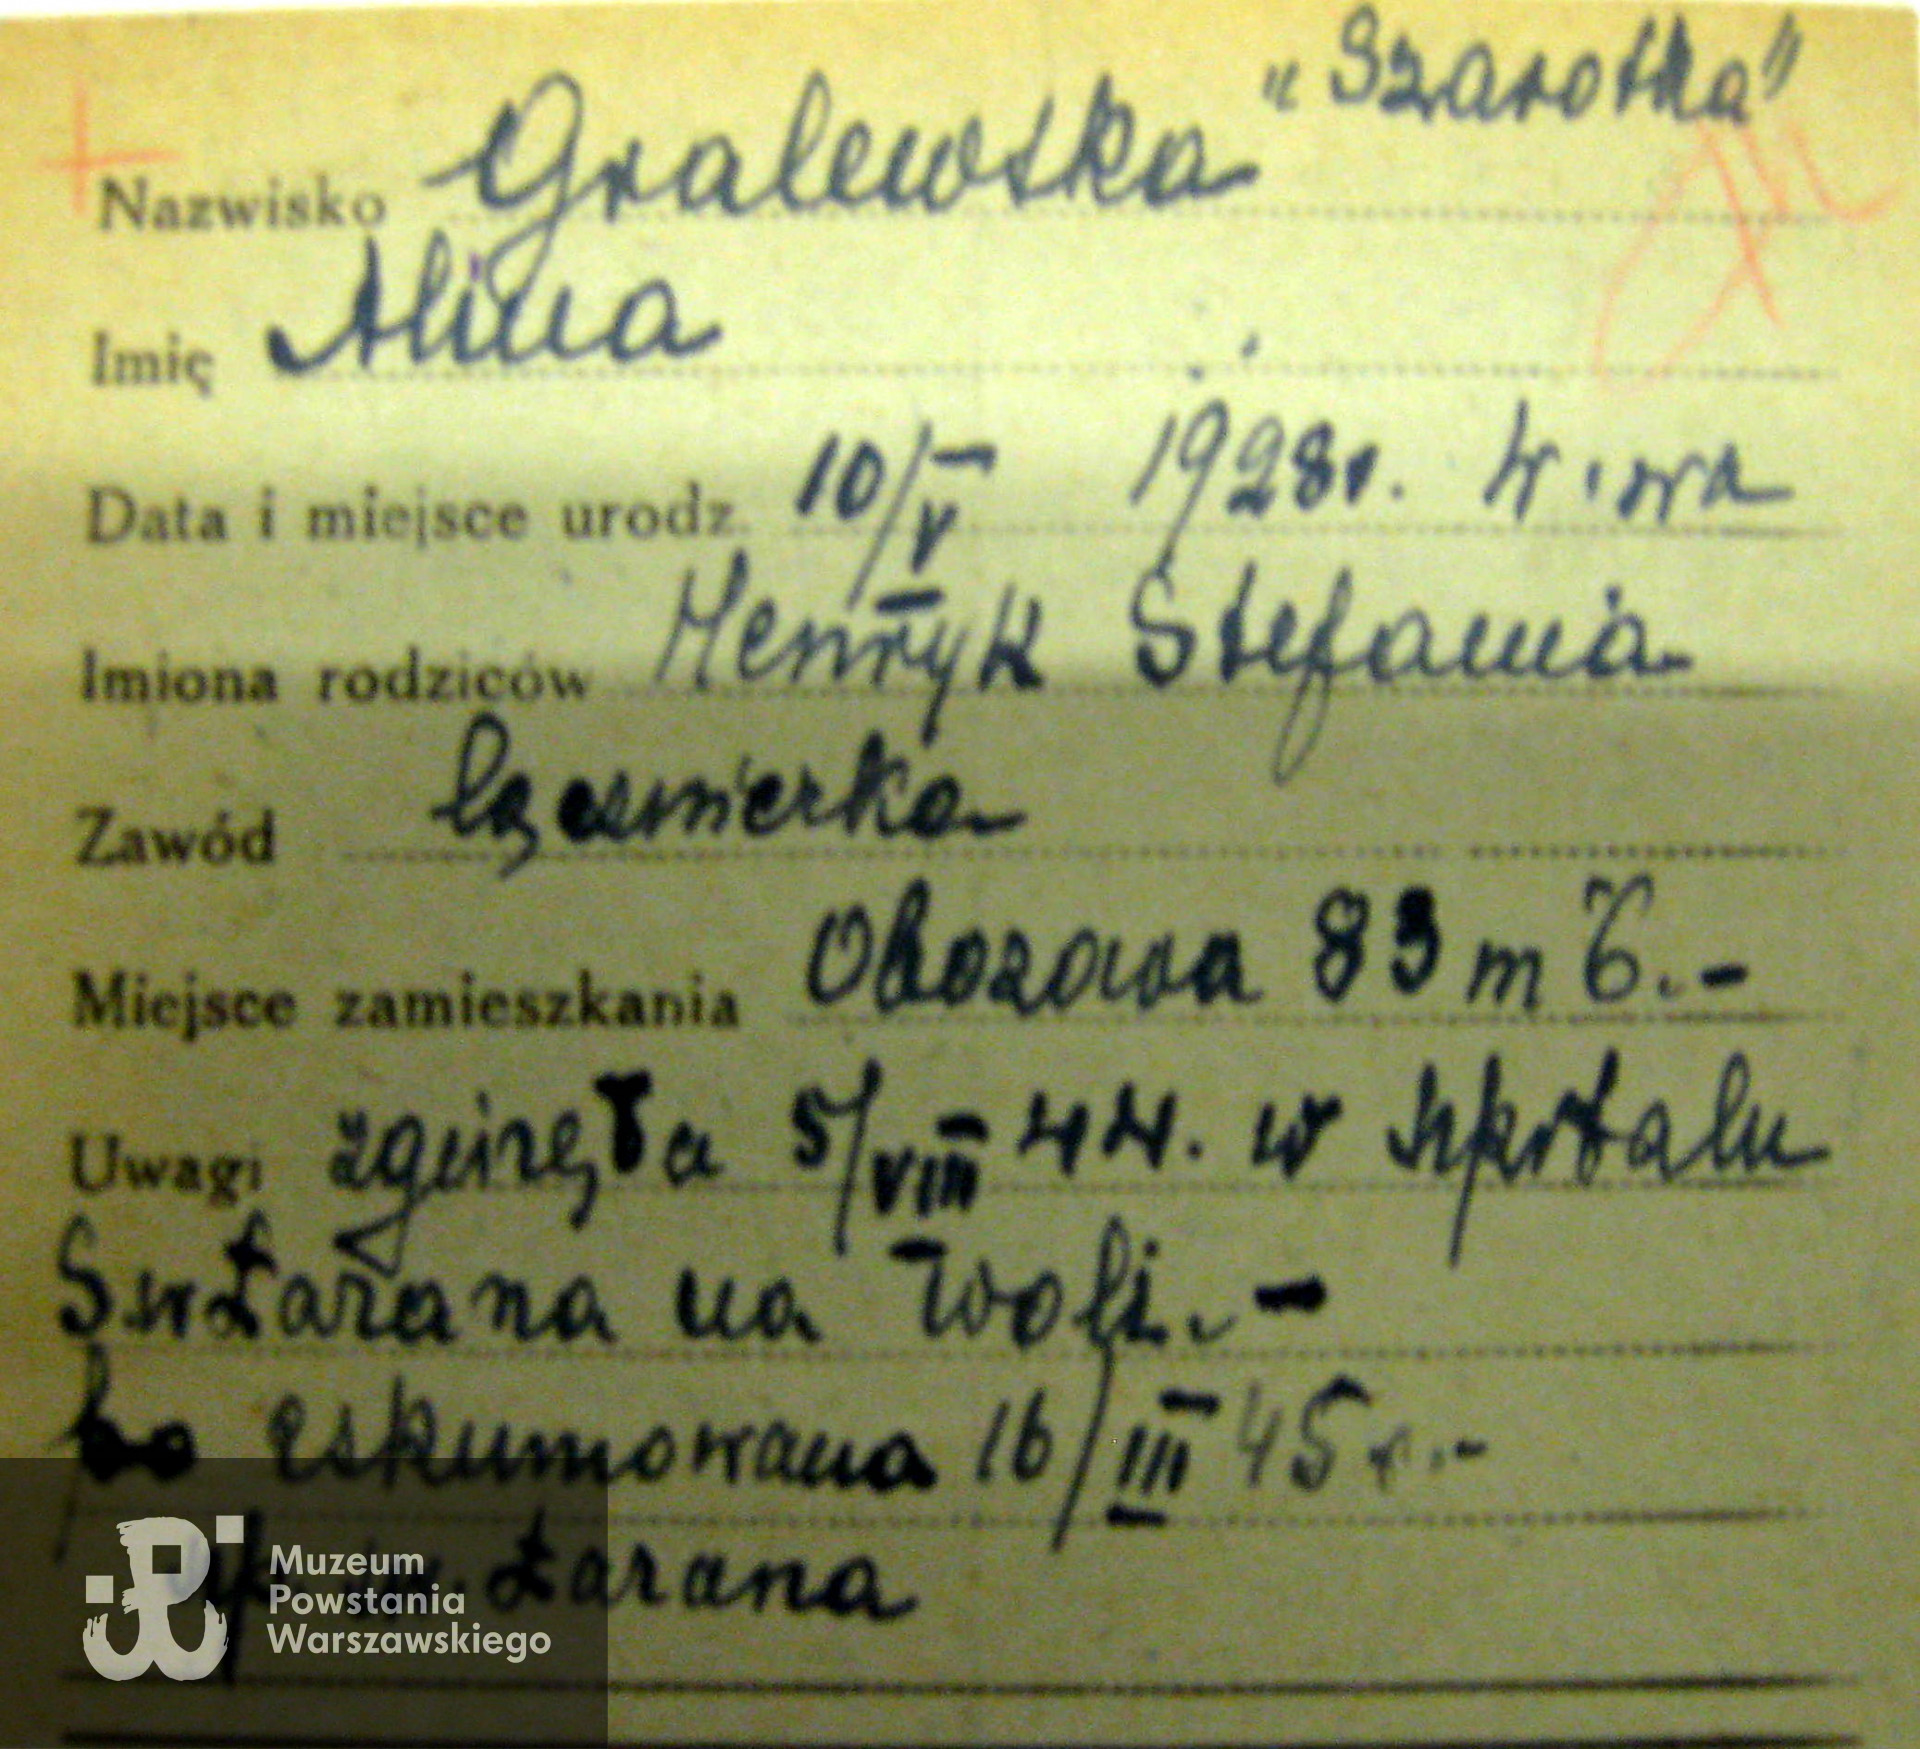 „Szarotka"
Nazwisko Gralewska
Imię Alina
Data i miejsce urodz. 10/V 1928r. W-wa
Imiona rodziców Henryk Stefania
Zawód
Miejsce zamieszkania Obozowa 83 m 6.-
Uwagi zginęła 5/VIII 44. w szpitalu
Sw Łazarza na Woli.-
eskumowana 16/III 45 r.-
Muzeum
Powstania
Warszawskiego